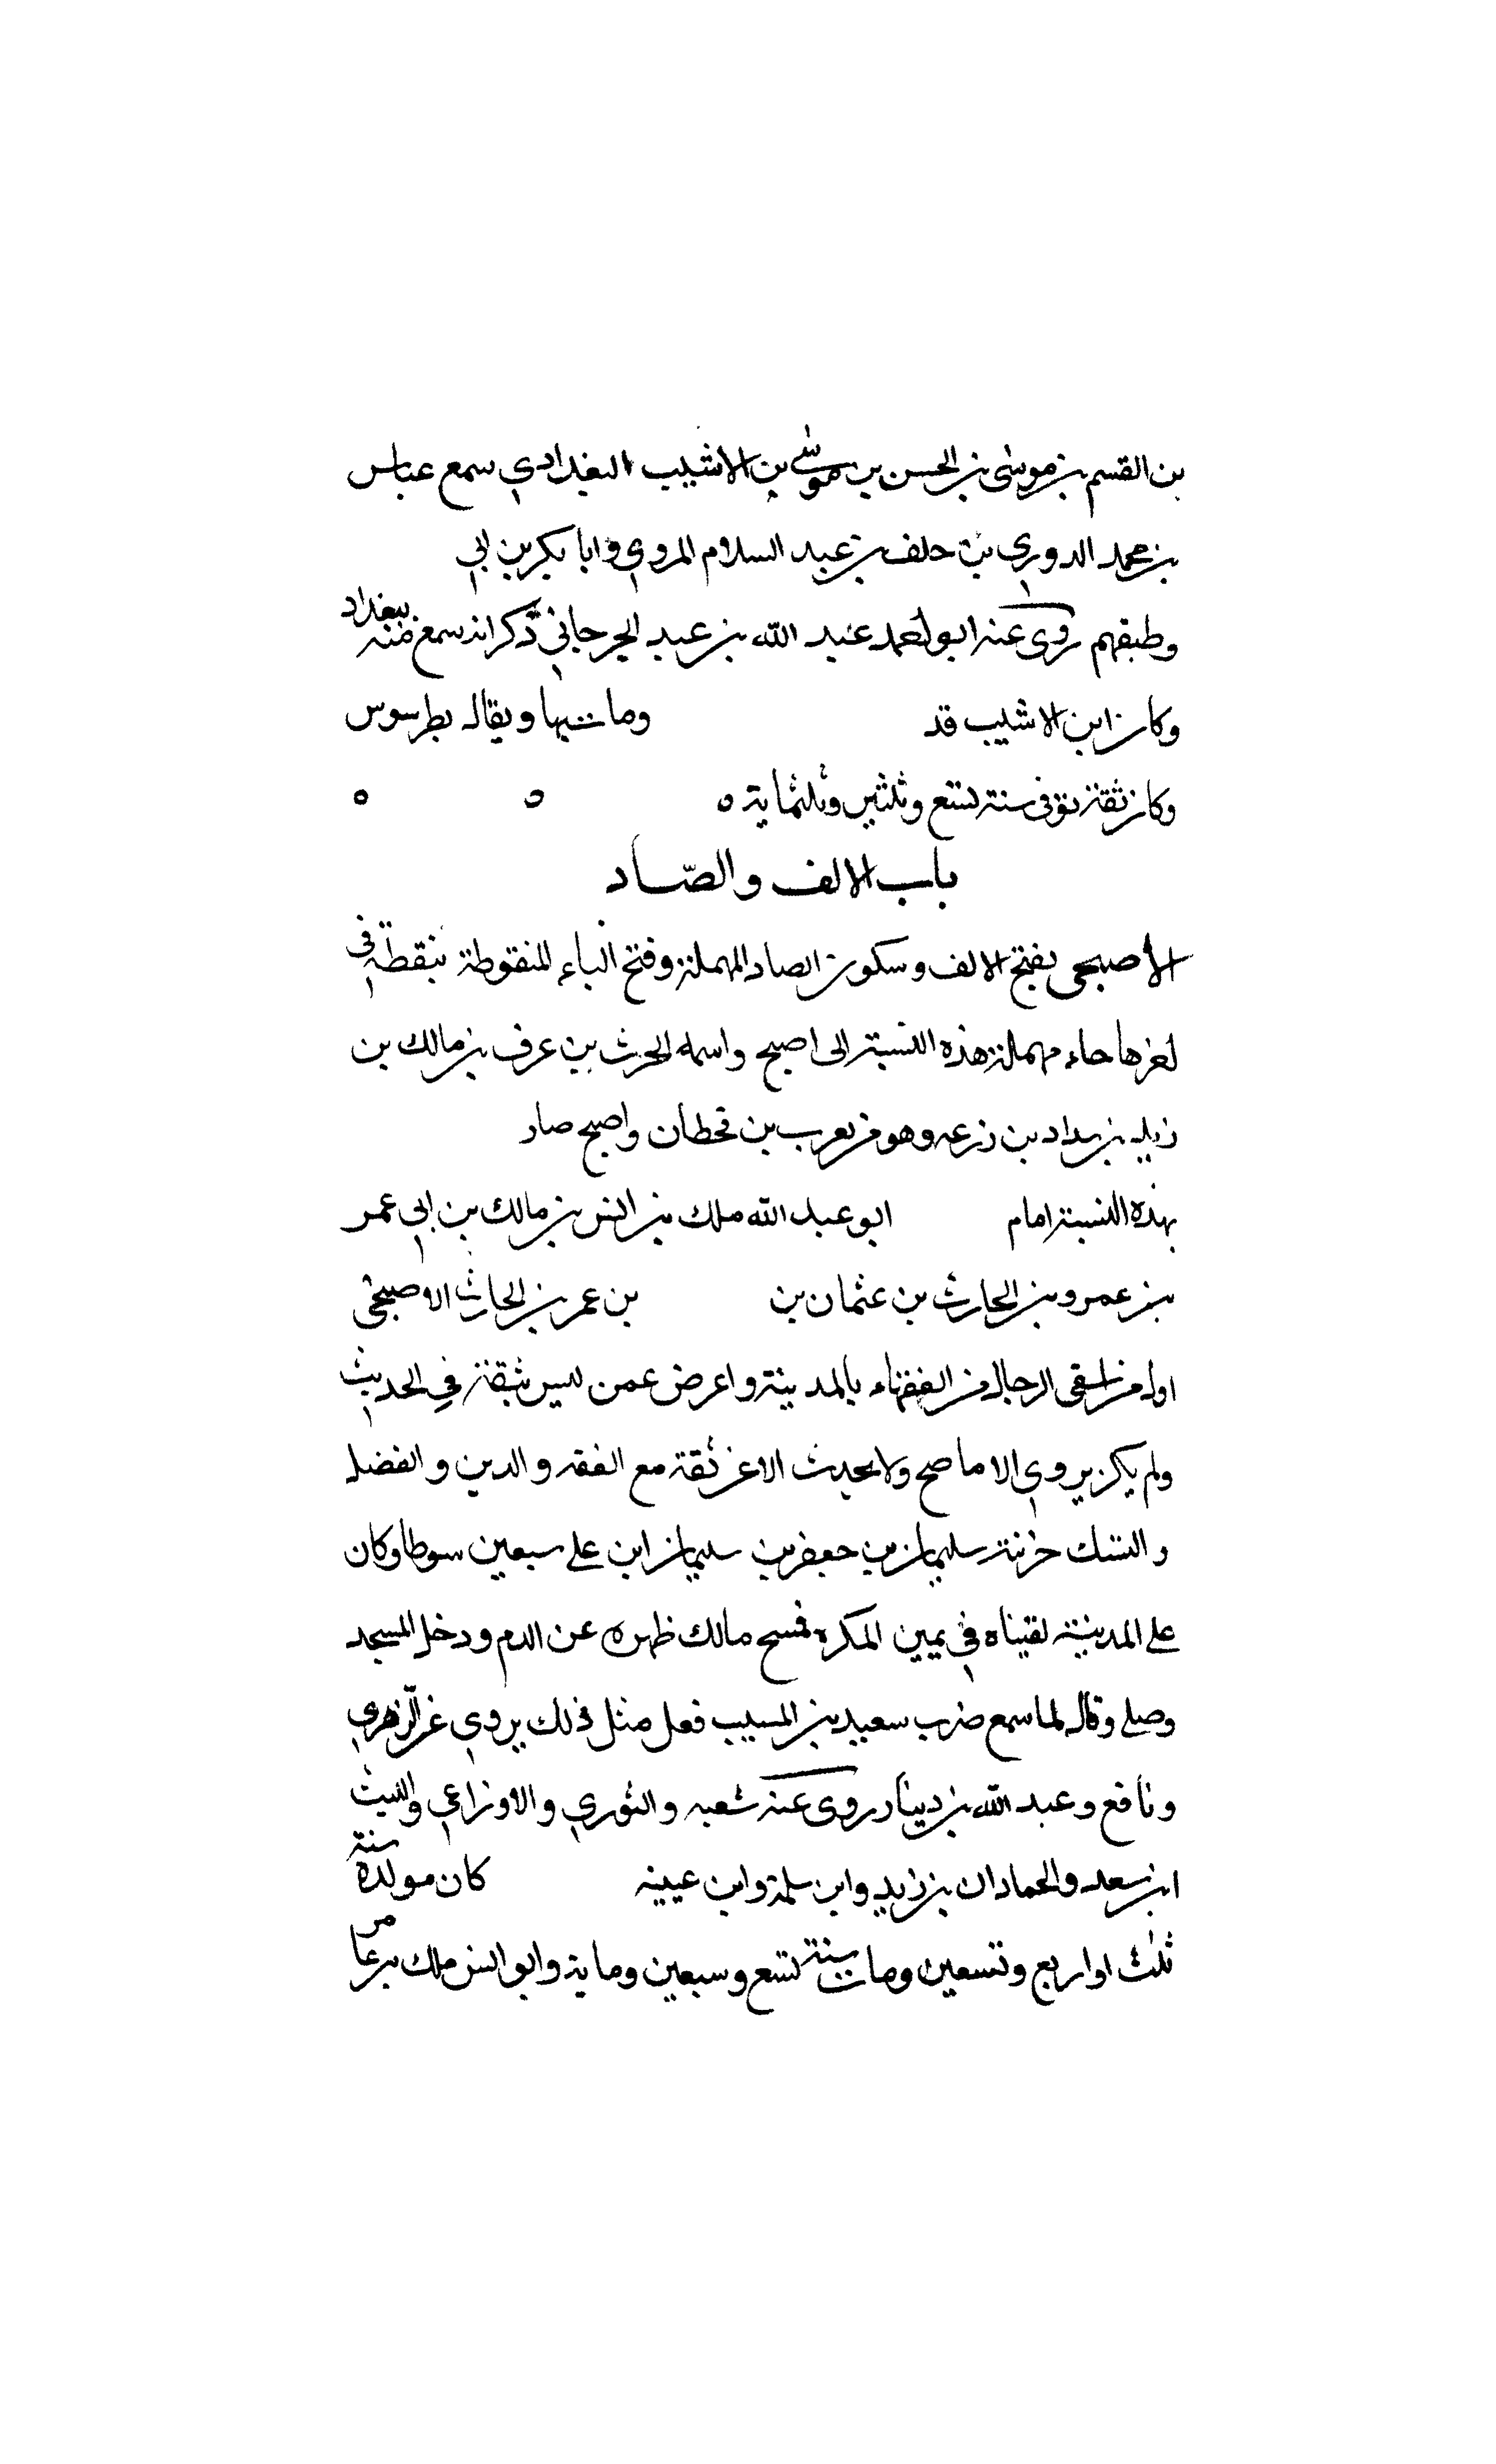 بن القسم بن موسى بن الحسن بن موسى بن الاشيب البغدادي سمع عباس
بن محمد الدوري خلف بن عبد السلام المروزي وابا بكر بن ابي
وطبقتهم روى عنه ابو عبد الله بن عبد الجرجاني ذكر انه سمع منه ببغداد
وكان ابن الاشيب قد ومات بها ويقال بطرسوس
وكان ثقة توفى سنة تسع وثلثين وثلثماية ه ه ه
باب الالف والصاد
الاصبحي بفتح الالف وسكون الصاد المهملة وفتح الباء المنقوطة بنقطة في
اخرها حاء مهملة هذه النسبة الى اصبح واسمه الحرث بن عوف بن مالك بن
زيد بن سداد بن زرعه وهو من يعرب بن قحطان واصبح صار
بهذه النسبة امام ابو عبد الله ملك بن انس بن مالك بن ابي عمر
بن عمرو بن الحارث بن عثمان بن بن عمر بن الحارث الاصبحي
اول من انتقى الرجال من الفقهاء بالمدينة واعرض عمن ليس بثقة في الحديث
ولم يكن يروي الا ما صح ولا يحدث الا عن ثقة مع الفقه والدين والفضل
والنسك ضربه سليمان بن جعفر بن سليمان ابن علي سبعين سوطا وكان
على المدينة لفتياه في يمين المكره فمسح مالك ظهره عن الدم ودخل المسجد
وصلى وقال لما سمع ضرب سعيد بن المسيب فعل مثل ذلك يروي عن الزهري
ونافع وعبد الله بن دينار روى عنه شعبه والثوري والاوزاعي والليث
ابن سعد والحمادان بن زيد وابن سلمة وابن عيينه كان مولده سنة
ثلث او اربع وتسعين ومات سنة تسع وسبعين وماية وابو انس ملك بن عامر